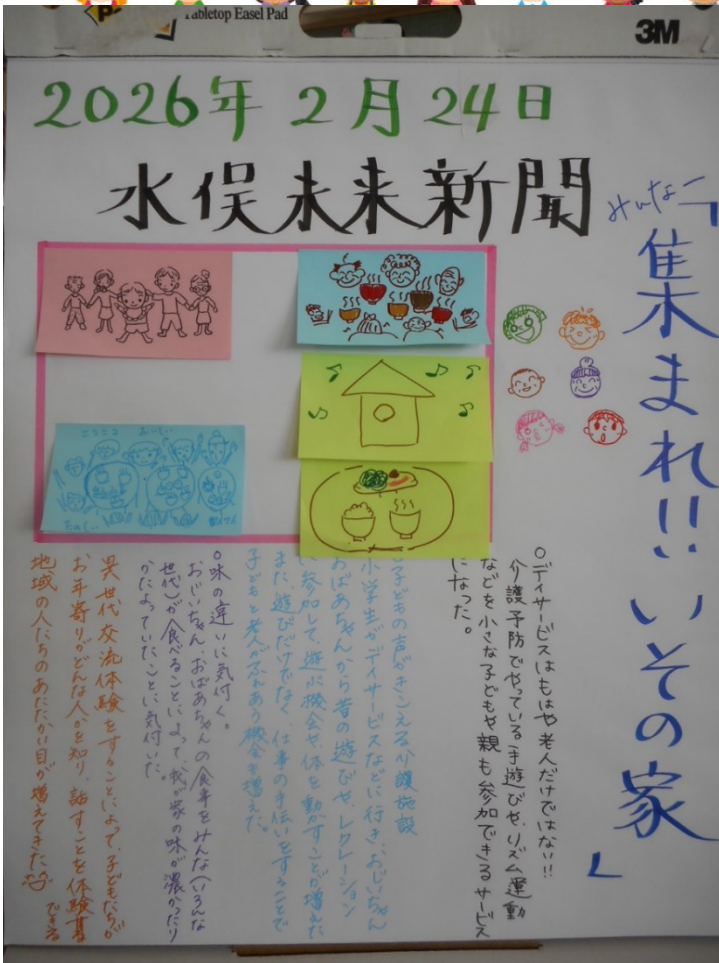 Tabletop Easel Pad
3M
2026年2月24日
水俣未来新聞
みんなー
「集まれ!!いその家」
○デイサービスはもはや老人だけではない!!
介護予防でやっている手遊びや、リズム運動
などを小さな子どもや親も参加できるサービス
になった。
子どもの声がきこえる介護施設
小学生がデイサービスなどに行き、おじいちゃん
おばあちゃんから昔の遊びや、レクレーション
に参加して、遊ぶ機会や、体を動かすことが増えた
また、遊びだけでなく、仕事の手伝いをすることで
子どもと老人がふれあう機会も増えた。
○味の違いに気付く。
おじいちゃん、おばあちゃんの食事をみんな(いろんな
世代)が食べることによって、我が家の味が濃かったり
かたよっていたことに気付いた。
異世代交流体験をすることによって、子どもたちが
お年寄りがどんな人かを知り、話すことを体験する
地域の人たちのあたたかい目が増えてきた
できる
ニコニコ
おいしい
たのしい